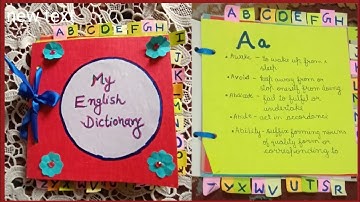 new text
A B C D E F G H
I
J
K
L
M
My
English
Dictionary
A B C D E F G H
Aa
Awake - to wake up from a
sleep
Avoid - keep away from or
stop oneself from doing
fail to fulfil or
undertake
act in accordance
Ability - suffix forming nouns
of quality form or
corresponding to
Z Y X W V U T S R